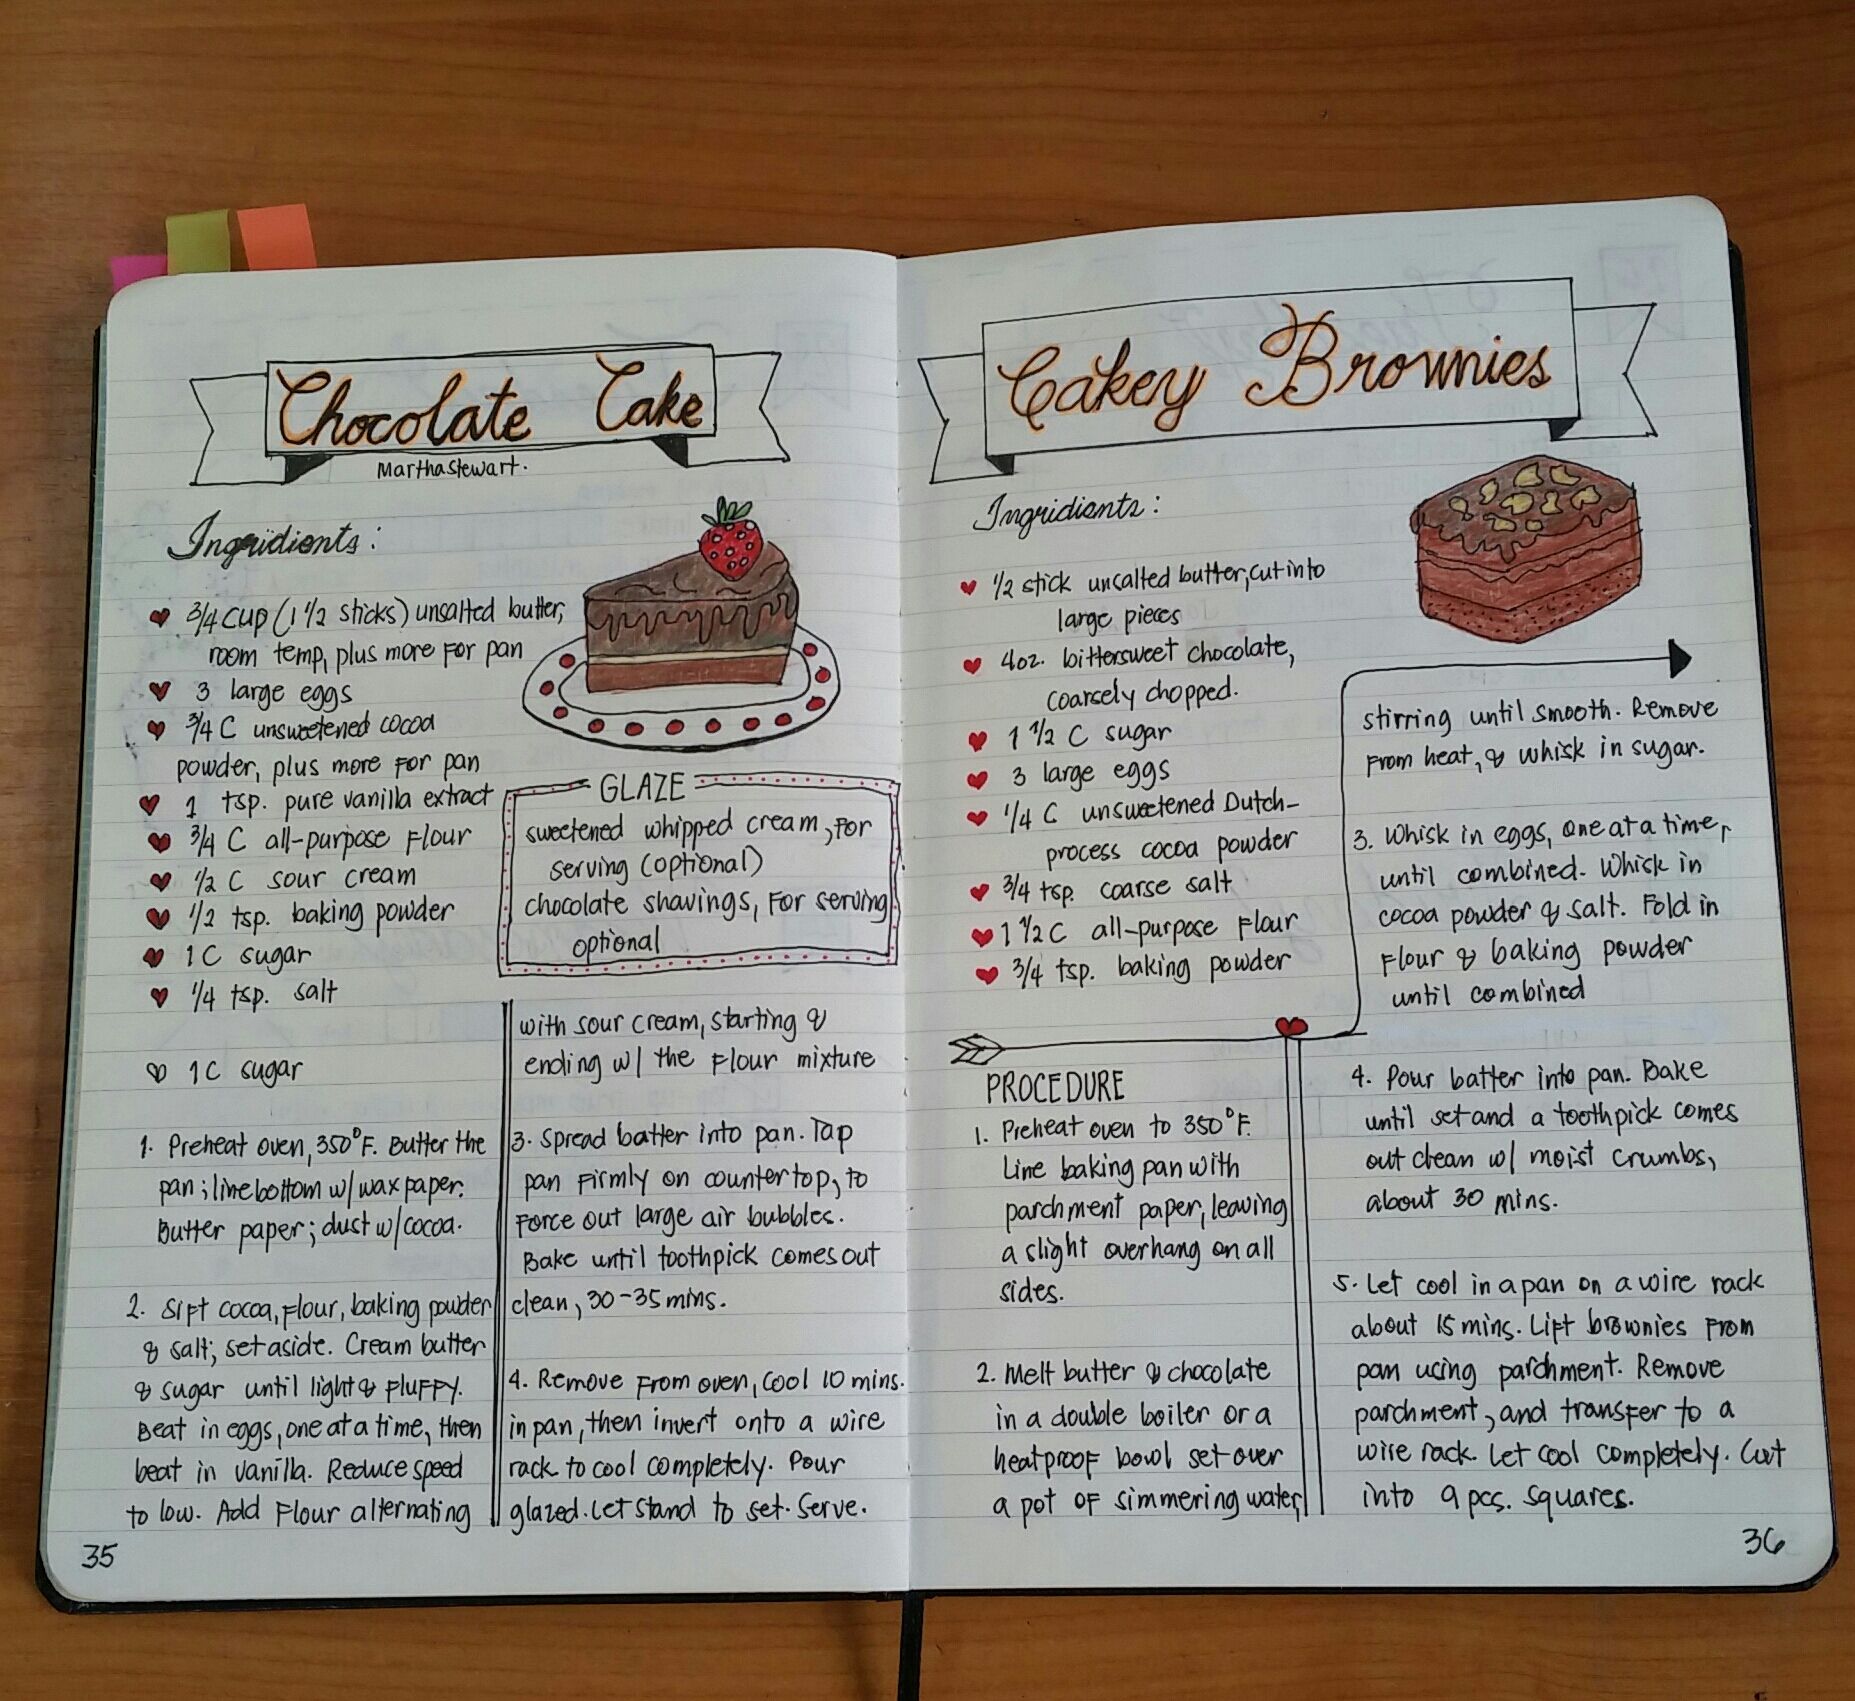 Chocolate Cake
Marthastewart.
Ingridients:
3/4 cup (1 1/2 sticks) unsalted butter,
room temp, plus more for pan
3 large eggs
3/4 C unsweetened cocoa
powder, plus more for pan
1 tsp. pure vanilla extract
3/4 C all-purpose flour
1/2 C sour cream
1/2 tsp. baking powder
1 C sugar
1/4 tsp. salt
1 C sugar
GLAZE
sweetened whipped cream, for
serving (optional)
chocolate shavings, for serving
optional
1. Preheat oven, 350°F. Butter the
pan; line bottom w/ wax paper.
Butter paper; dust w/ cocoa.
2. Sift cocoa, flour, baking powder
& salt; set aside. Cream butter
& sugar until light & fluffy.
Beat in eggs, one at a time, then
beat in vanilla. Reduce speed
to low. Add flour alternating
with sour cream, starting &
ending w/ the flour mixture
3. Spread batter into pan. Tap
pan firmly on countertop, to
force out large air bubbles.
Bake until toothpick comes out
clean, 30-35 mins.
4. Remove from oven, cool 10 mins.
in pan, then invert onto a wire
rack to cool completely. Pour
glazed. Let stand to set. Serve.
35
Cakey Brownies
Ingridients:
1/2 stick unsalted butter, cut into
large pieces
4oz. bittersweet chocolate,
coarsely chopped.
1 1/2 C sugar
3 large eggs
1/4 C unsweetened Dutch-
process cocoa powder
3/4 tsp. coarse salt
1 1/2 C all-purpose flour
3/4 tsp. baking powder
PROCEDURE
1. Preheat oven to 350°F.
Line baking pan with
parchment paper, leaving
a slight overhang on all
sides.
2. Melt butter & chocolate
in a double boiler or a
heatproof bowl set over
a pot of simmering water,
stirring until smooth. Remove
from heat, & whisk in sugar.
3. Whisk in eggs, one at a time,
until combined. Whisk in
cocoa powder & salt. Fold in
flour & baking powder
until combined
4. Pour batter into pan. Bake
until set and a toothpick comes
out clean w/ moist crumbs,
about 30 mins.
5. Let cool in a pan on a wire rack
about 15 mins. Lift brownies from
pan using parchment. Remove
parchment, and transfer to a
wire rack. Let cool completely. Cut
into 9 pcs. squares.
36